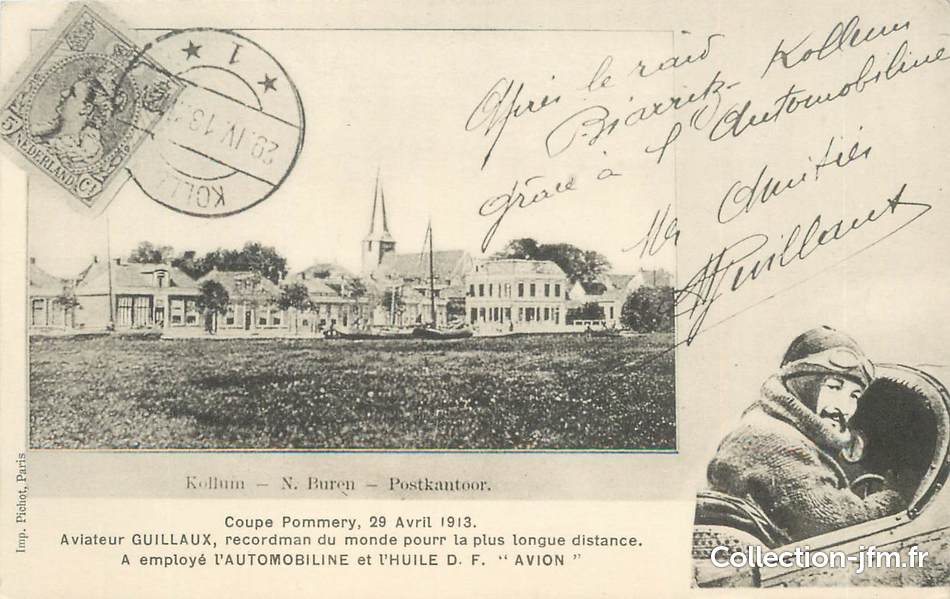 1
29.IV.13
KOLL
5
NEDERLAND Ct
Après le raid
Biarritz - Kollum
grâce à l'Automobiline
Mes Amitiés
Guillaux
Kollum – N. Buren – Postkantoor.
Imp. Pichot, Paris
Coupe Pommery, 29 Avril 1913.
Aviateur GUILLAUX, recordman du monde pourr la plus longue distance.
A employé l'AUTOMOBILINE et l'HUILE D. F. “ AVION ”
Collection-jfm.fr